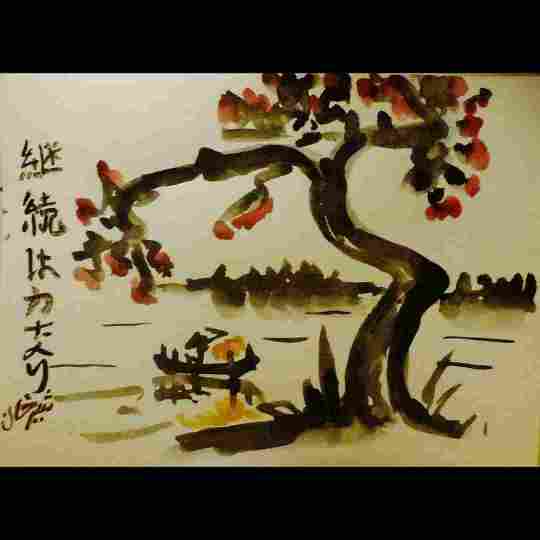 継続は力なり